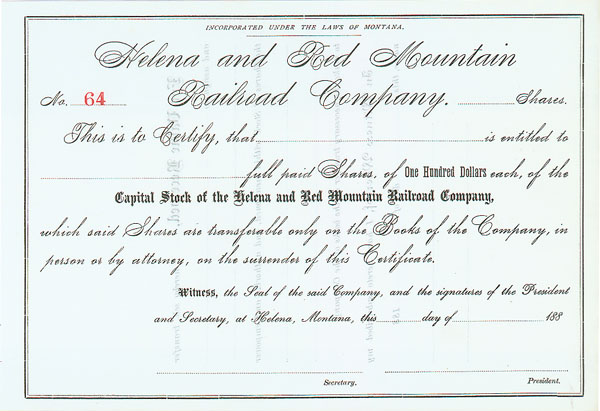 INCORPORATED UNDER THE LAWS OF MONTANA.
Helena and Red Mountain
No. 64 Railroad Company. Shares.
This is to Certify, that is entitled to
full paid Shares, of One Hundred Dollars each, of the
Capital Stock of the Helena and Red Mountain Railroad Company,
which said Shares are transferable only on the Books of the Company, in
person or by attorney, on the surrender of this Certificate.
Witness, the Seal of the said Company, and the signatures of the President
and Secretary, at Helena, Montana, this day of 188
Secretary. President.